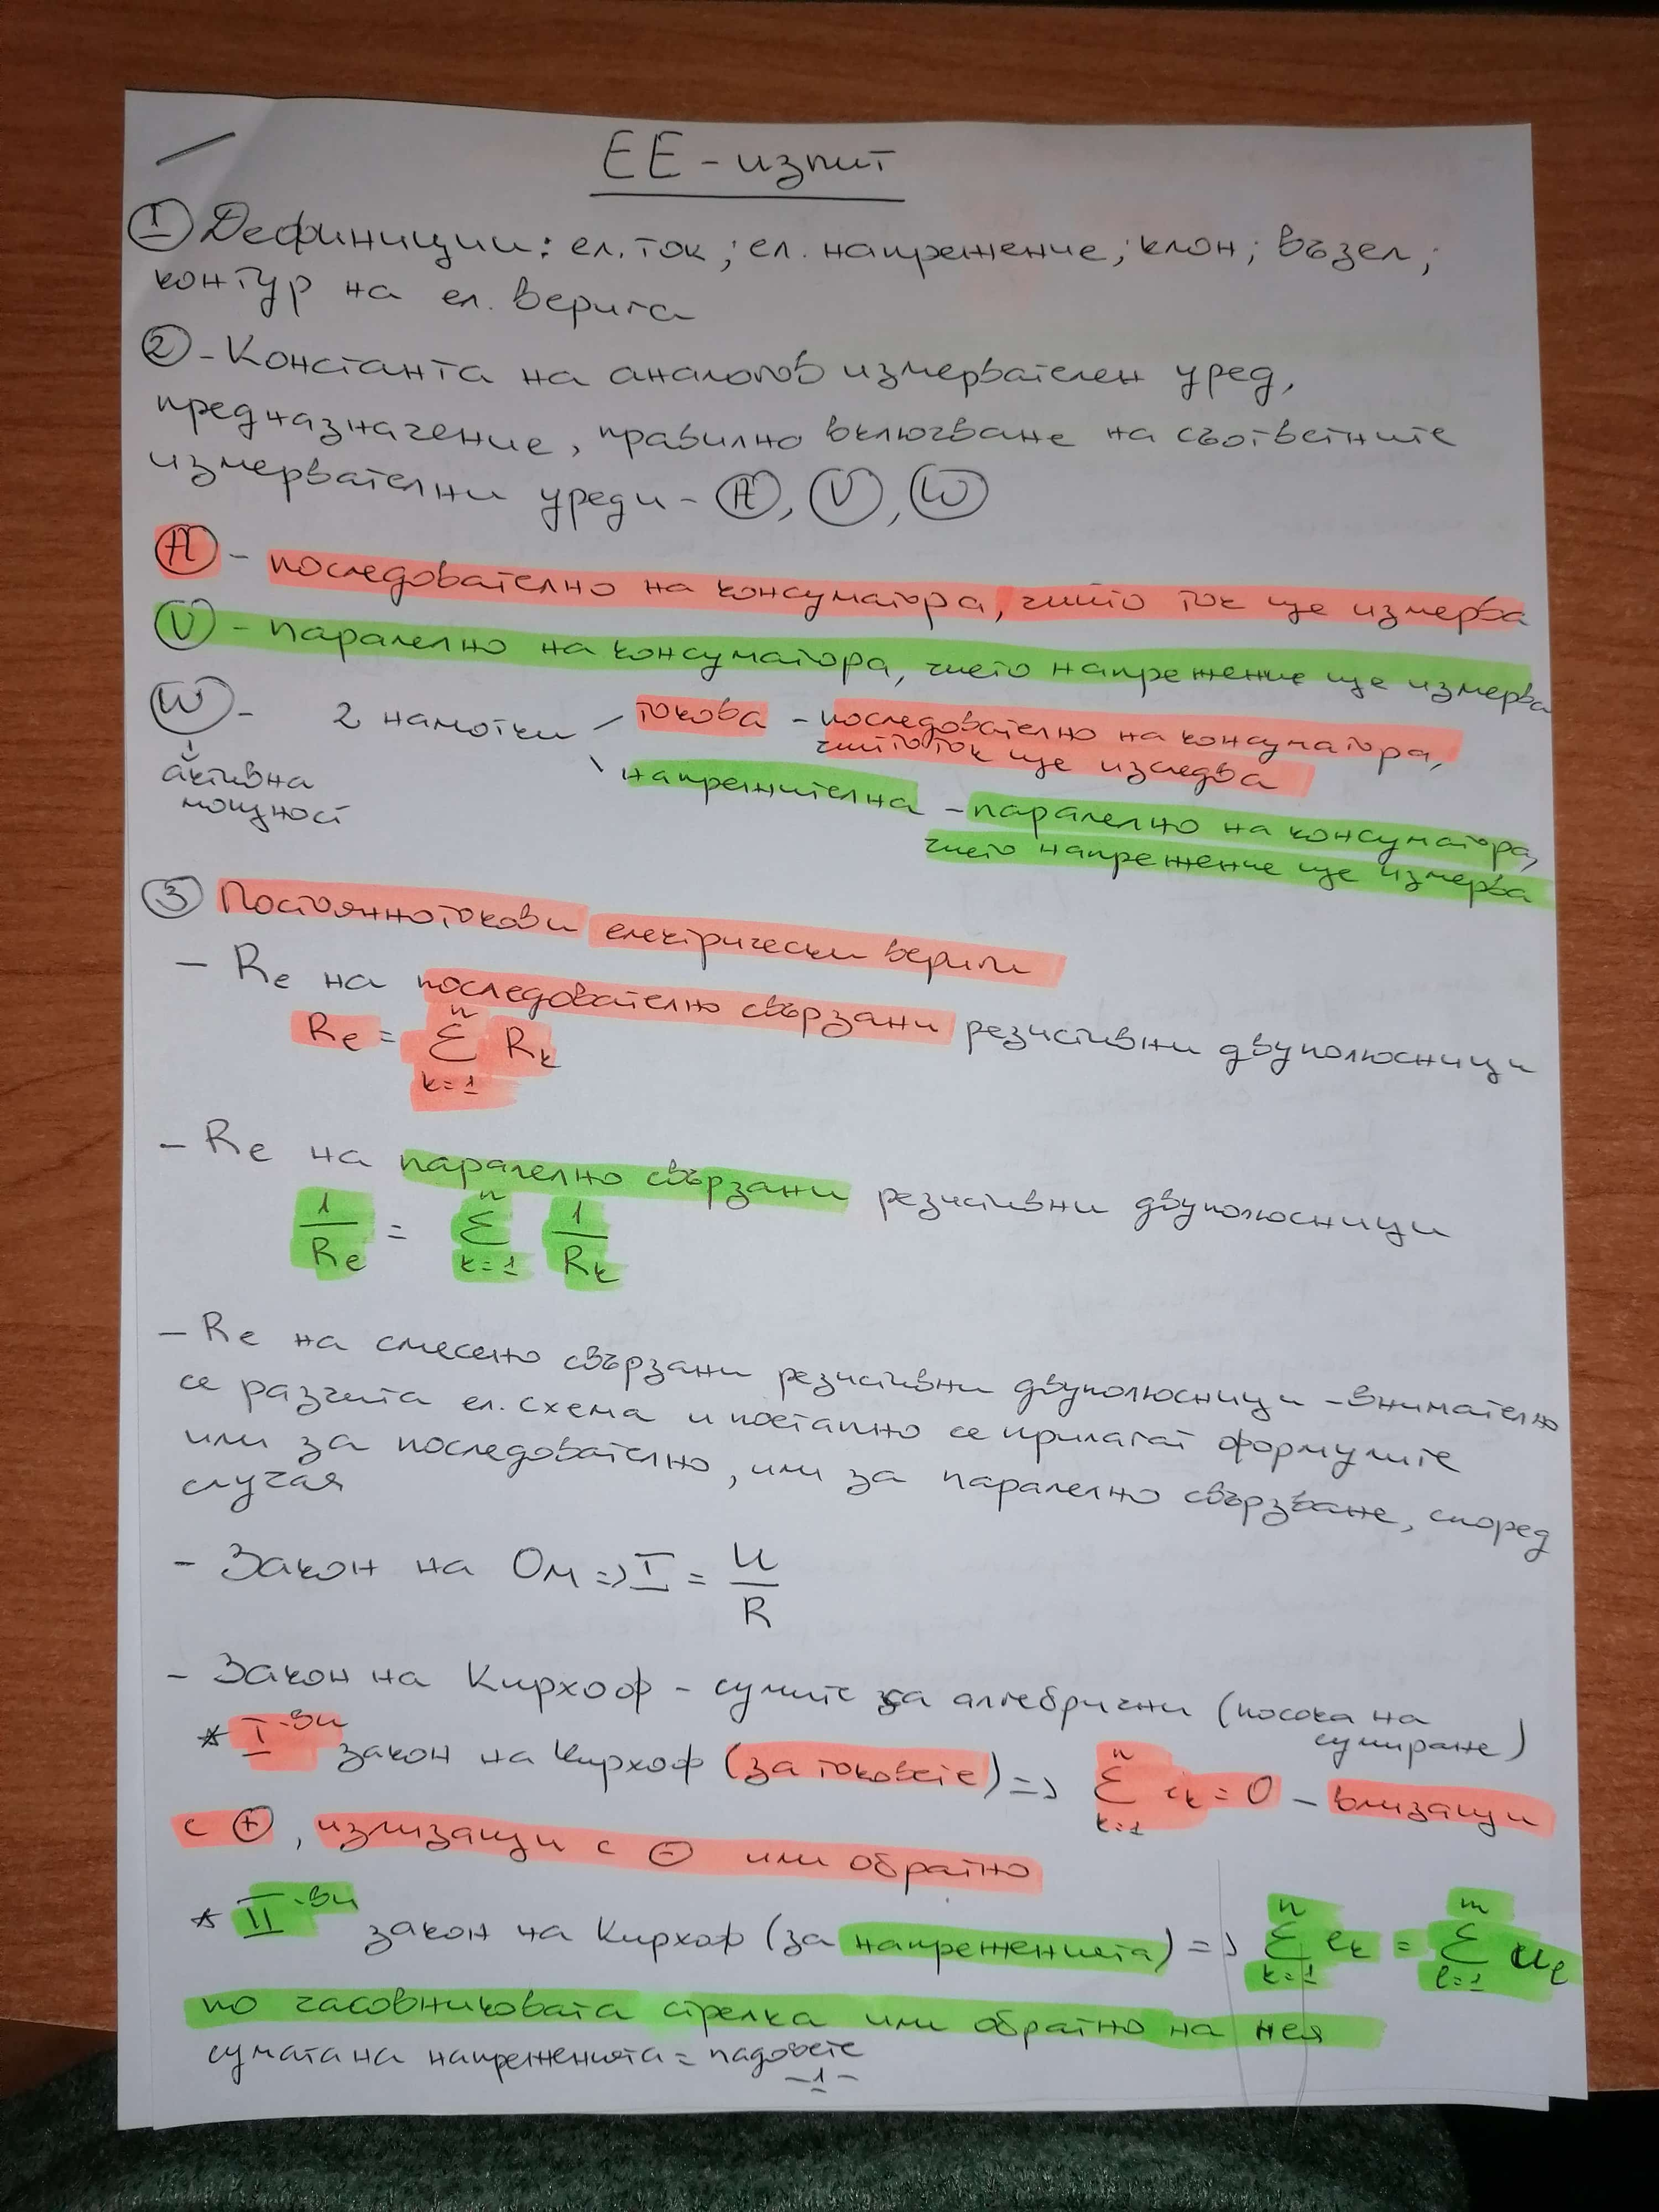 ЕЕ - изпит
① Дефиниции: ел. ток; ел. напрежение; клон; възел;
контур на ел. верига
② - Константа на аналогов измервателен уред,
предназначение, правилно включване на съответните
измервателни уреди - Ⓐ, Ⓥ, Ⓦ
Ⓐ - последователно на консуматора, чийто ток ще измерва
Ⓥ - паралелно на консуматора, чието напрежение ще измерва
Ⓦ - 2 намотки токова - последователно на консуматора,
чийто ток ще изследва
активна
мощност
напрежителна - паралелно на консуматора,
чието напрежение ще измерва
③ Постояннотокови електрически вериги
- Re на последователно свързани резистивни двуполюсници
Re = n Σ k=1 Rk
- Re на паралелно свързани резистивни двуполюсници
1/Re = n Σ k=1 1/Rk
- Re на смесено свързани резистивни двуполюсници - внимателно
се разчита ел. схема и поетапно се прилагат формулите
или за последователно, или за паралелно свързване, според
случая
- Закон на Ом => I = U/R
- Закон на Кирхоф - сумите са алгебрични (посока на
сумиране)
* I-ви закон на Кирхоф (за токовете) => n Σ k=1 ik = 0 - влизащи
с ⊕, излизащи с ⊖ или обратно
* II-ви закон на Кирхоф (за напреженията) => n Σ k=1 ek = m Σ l=1 ul
по часовниковата стрелка или обратно на нея
сумата на напреженията = падовете
-1-